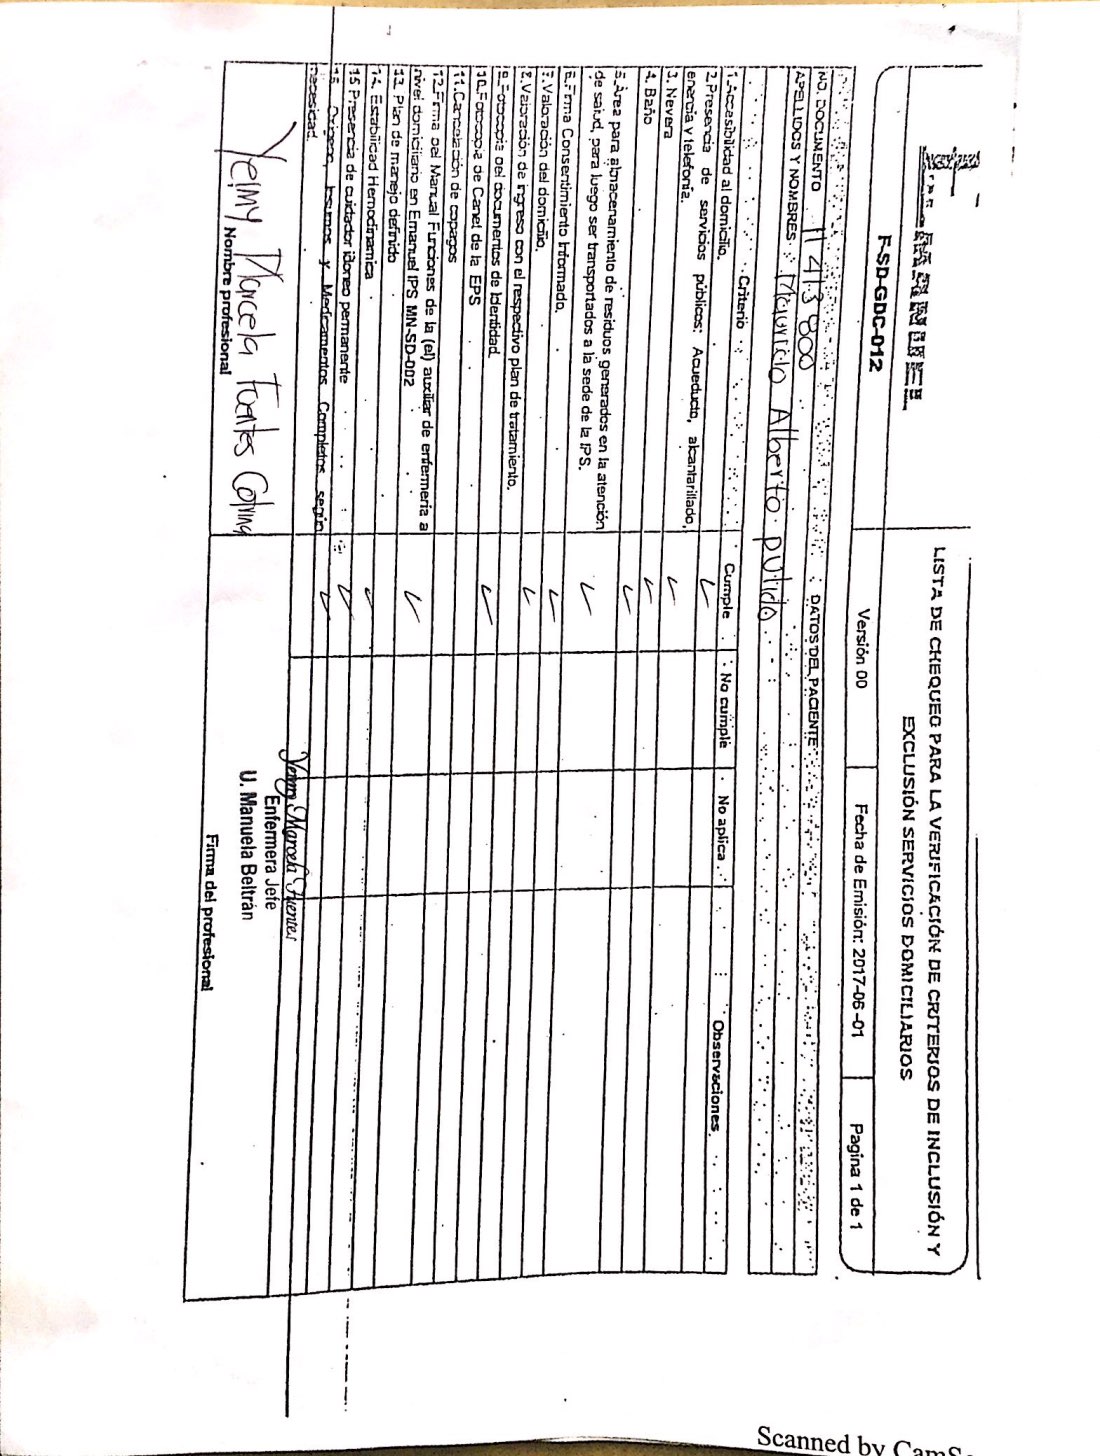 EMANUEL
F-SD-GDC-012
LISTA DE CHEQUEO PARA LA VERIFICACIÓN DE CRITERIOS DE INCLUSIÓN Y
EXCLUSIÓN SERVICIOS DOMICILIARIOS
Versión 00
Fecha de Emisión: 2017-06-01
Pagina 1 de 1
DATOS DEL PACIENTE
NO. DOCUMENTO 11413800
APELLIDOS Y NOMBRES Mauricio Alberto pulido
Criterio Cumple No cumple No aplica Observaciones
1. Accesibilidad al domicilio.
2. Presencia de servicios públicos: Acueducto, alcantarillado,
energía y telefonía. ✓
3. Nevera ✓
4. Baño ✓
5. Área para almacenamiento de residuos generados en la atención
de salud, para luego ser transportados a la sede de la IPS. ✓
6. Firma Consentimiento Informado. ✓
7. Valoración del domicilio. ✓
8. Valoración de ingreso con el respectivo plan de tratamiento. ✓
9. Fotocopia del documentos de Identidad.
10. Fotocopia de Canet de la EPS ✓
11. Cancelación de copagos
12. Firma del Manual Funciones de la (el) auxiliar de enfermería a
nivel domiciliario en Emanuel IPS MN-SD-002 ✓
13. Plan de manejo definido
14. Estabilidad Hemodinamica ✓
15 Presencia de cuidador idoneo permanente ✓
16. Oxigeno, Insumos y Medicamentos Completos según
necesidad. ✓
Yeimy Marcela Fuentes
Nombre profesional
Yeimy Marcela Fuentes
Enfermera Jefe
U. Manuela Beltrán
Firma del profesional
Scanned by